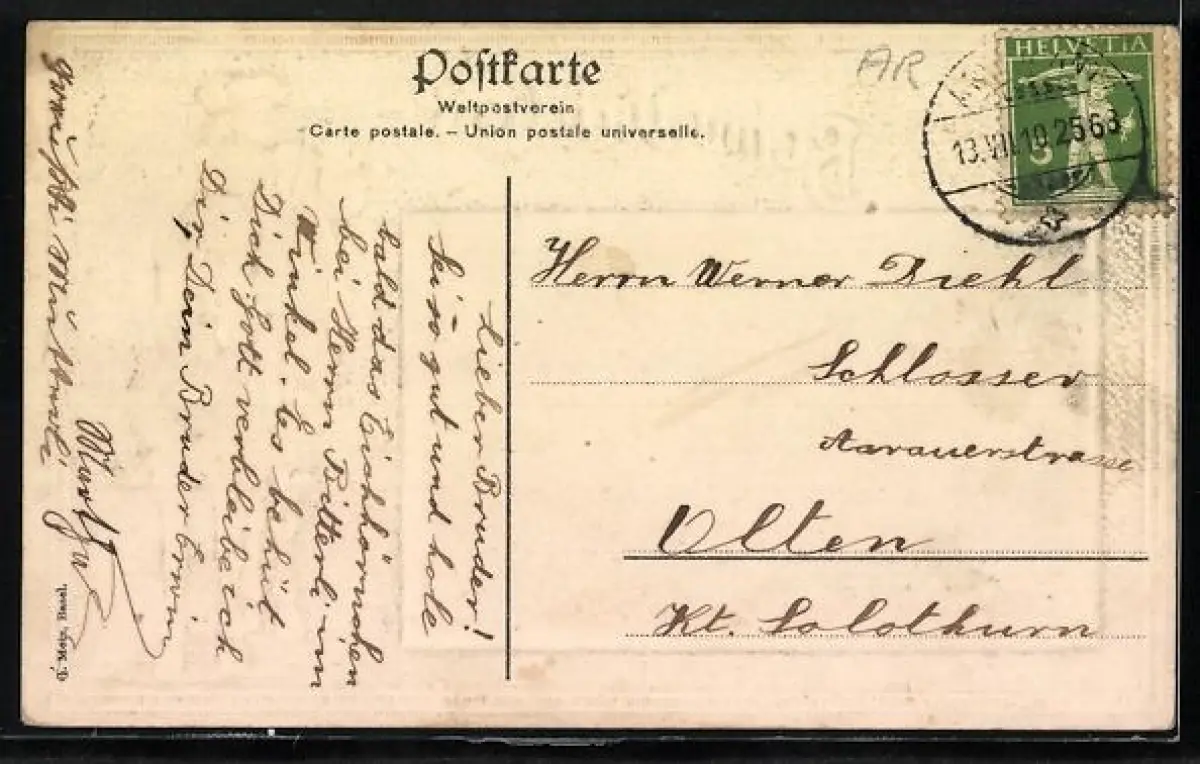 Postkarte
Weltpostverein
Carte postale. – Union postale universelle.
AR
HELVETIA
13.VII.10.
5
Lieber Bruder!
Sei so gut und hole
bald das Eichhörnchen
bei Herrn Bitterli im
Winkel. Es behüt
Dich Gott verbleibe ich
Dir, Dein Bruder Erwin
Herrn Werner Diehl
Schlosser
Aarauerstrasse
Olten
Kt. Solothurn
Basel.